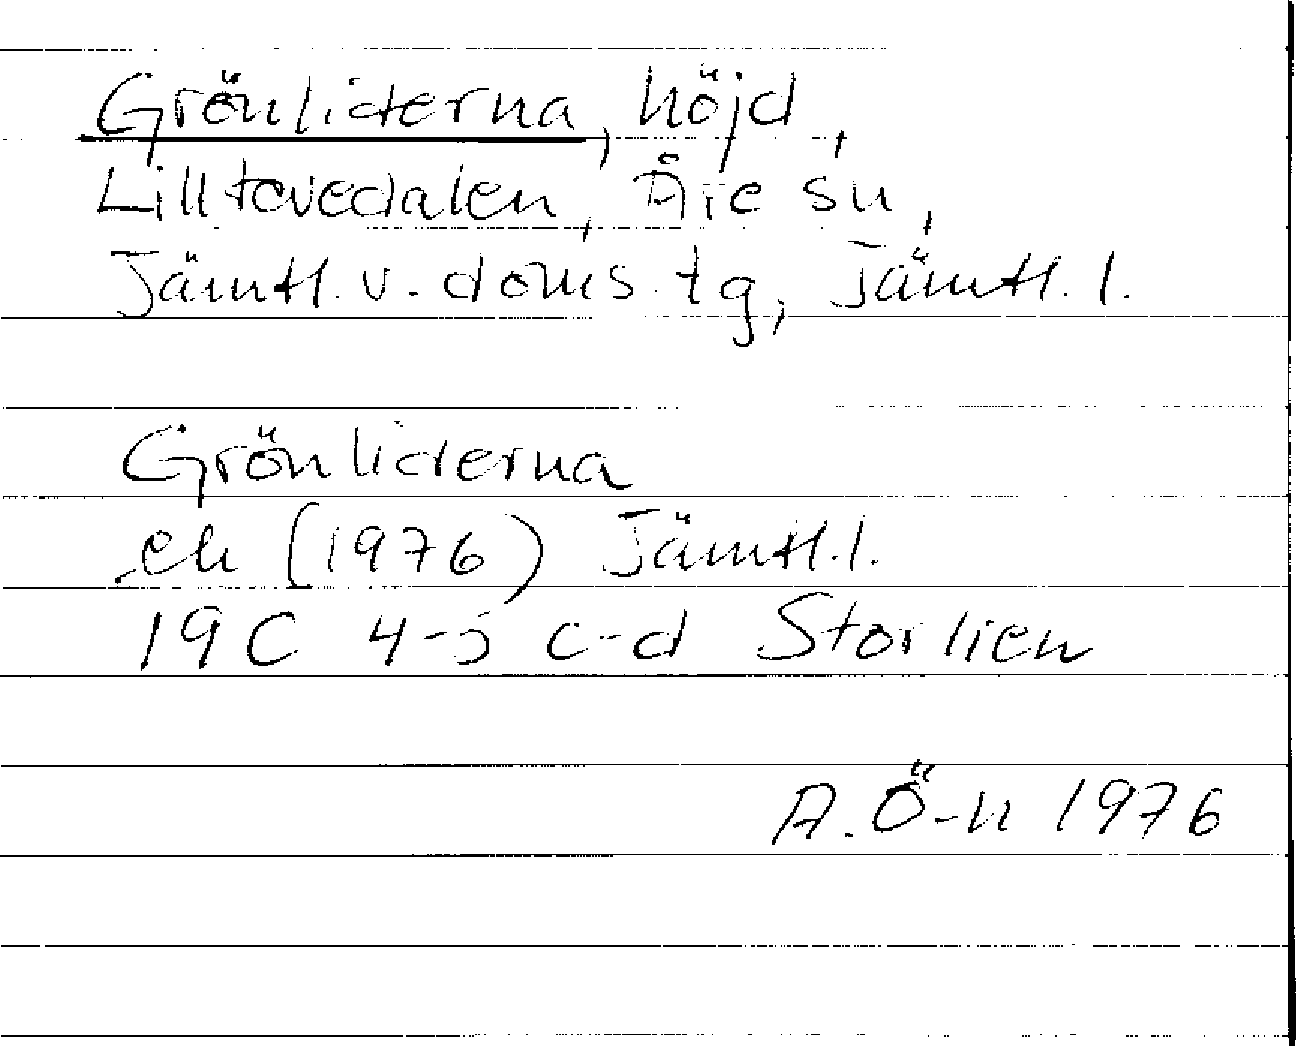 Grönliderna, höjd,
Lilltevedalen, Åre sn,
Jämtl. v. doms. tg, Jämtl. l.
Grönliderna
ek (1976) Jämtl. l.
19C 4-5 c-d Storlien
A. Ö-n 1976